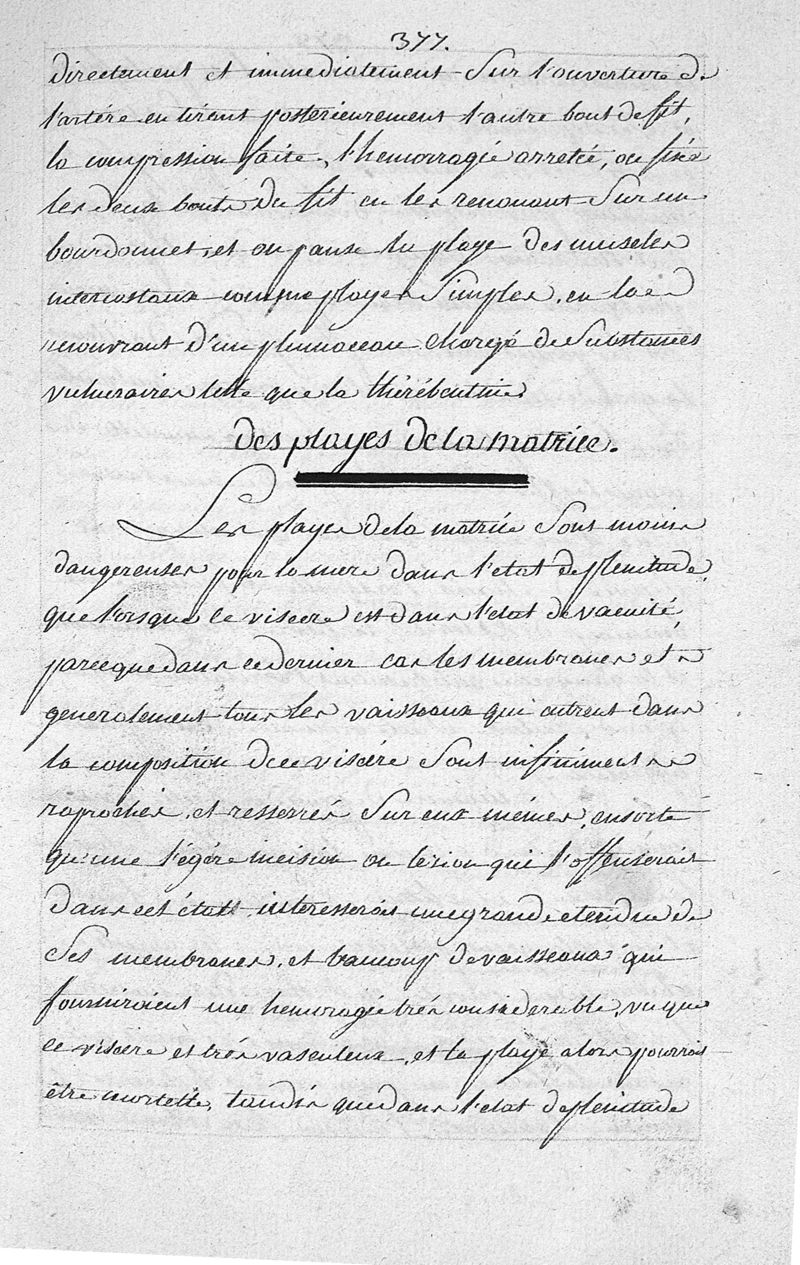 377.
directement et immediatement Sur l'ouverture de
l'artére en tirant posterieurement l'autre bout de fil,
la compression faite, l'hemorragie arretée, on fixe
les deux bouts du fil en les renouant Sur un
bourdonnet, et on panse la playe des muscles
intercostaux comme playes Simples, en la
recouvrant d'un plumaceau chargé de Substances
vulneraires telle que la thérébentine.
des playes de la matrice.
Les playes de la matrice Sont moins
dangereuses pour la mere dans l'etat de plenitude,
que lorsque ce viscere est dans l'etat de vacuité,
parceque dans ce dernier cas les membranes et
generalement tous les vaisseaux qui entrent dans
la composition de ce viscére Sont infiniment
raprochés, et resserrés Sur eux mêmes, ensorte
qu'une l'égére incision ou lezion qui l'offenserait
dans cet état, interesserois une grande etendue de
Ses membranes, et baucoup de vaisseaux qui
fourniroient une hemoragie trés considerable, vu que
ce viscere et trés vasculeux, et la playe alors pourrois
être mortelle, tandis que dans l'etat de plenitude